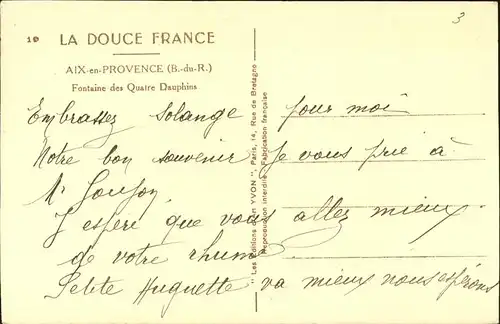 3
10 LA DOUCE FRANCE
AIX-en-PROVENCE (B.-du-R.)
Fontaine des Quatre Dauphins
Embrassez Solange pour moi
Notre bon souvenir Je vous prie à
Mr
J'espère que vous allez mieux
de votre rhume
Petite Huguette va mieux nous espérons
"Les Editions d'Art YVON", Paris, 14, Rue de Bretagne
Reproduction interdite Fabrication française